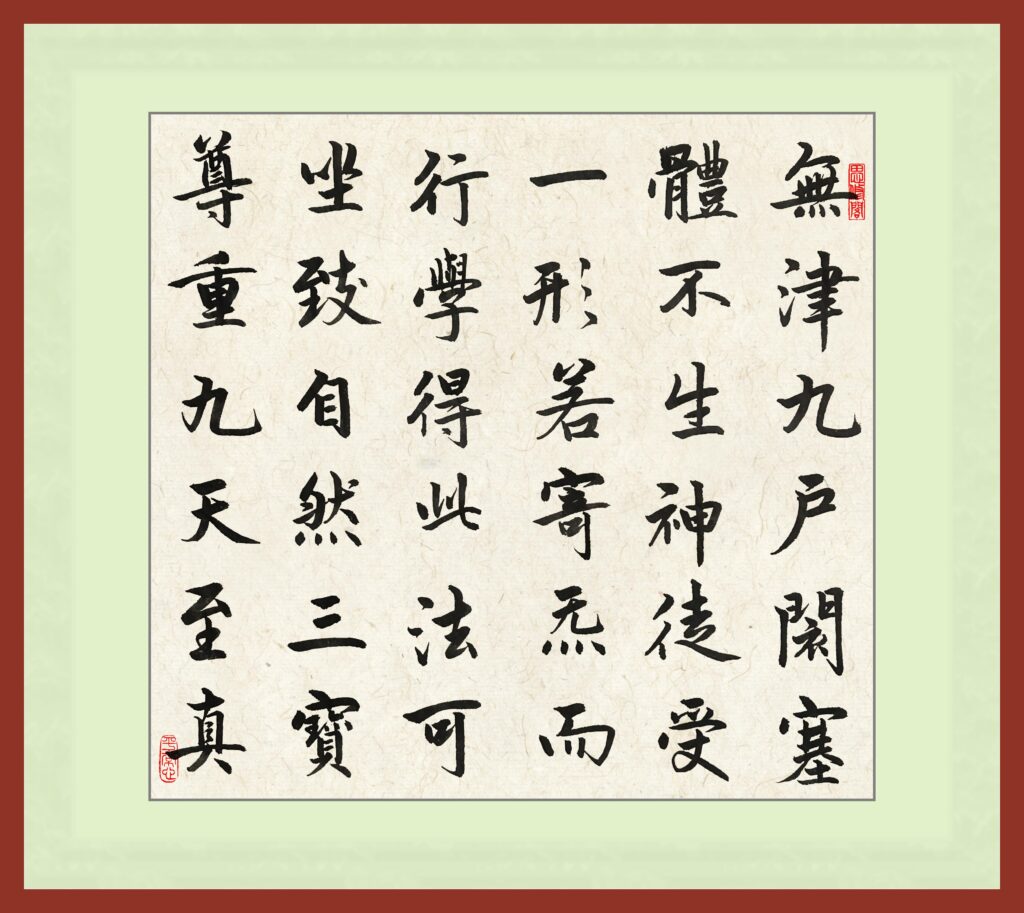 無津九戶閡塞
體不生神徒受
一形若寄炁而
行學得此法可
坐致自然三寶
尊重九天至真